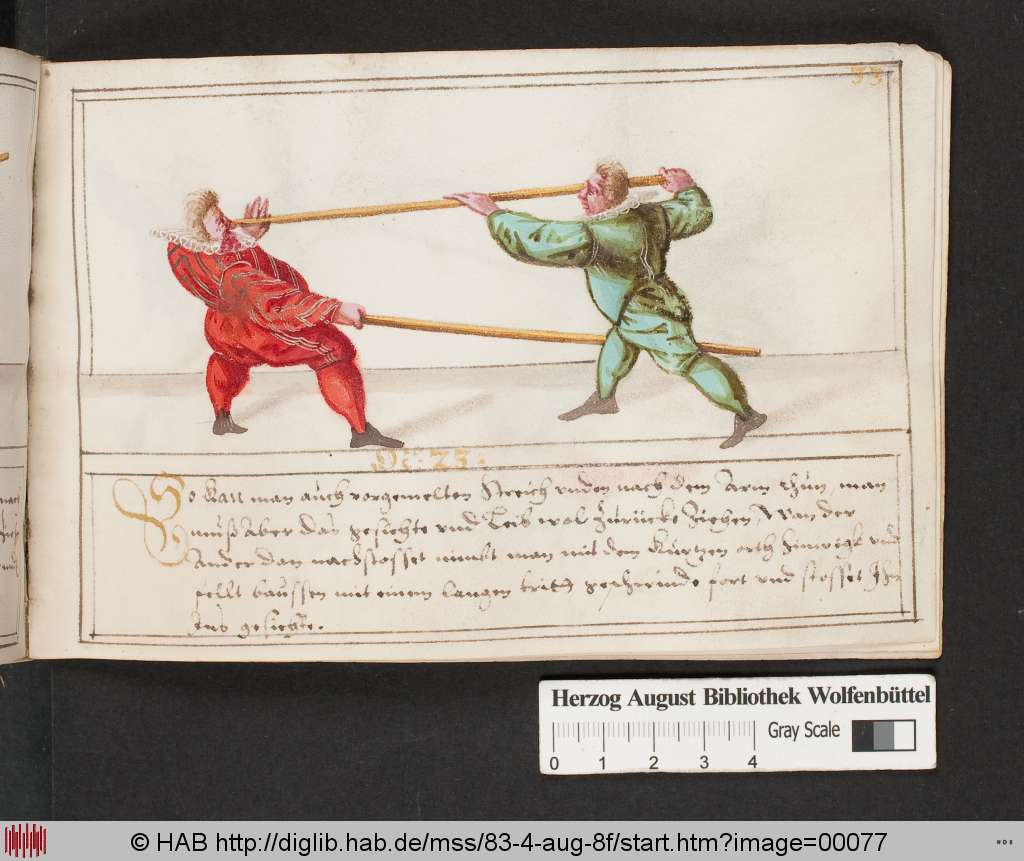 33
No: 23:
So kan man auch vorgemelten Streich unden nach dem Arm thun, man
muß aber das gesichte und Leib wol zurücke ziehen, Wan der
Ander dan nachstosset nimbt man mit dem kurtzen orth hinwegk und
fellt baussen mit einem langen tritt fort und stosset Ihn
Ins gesichte.
Herzog August Bibliothek Wolfenbüttel
Gray Scale
0 1 2 3 4
© HAB http://diglib.hab.de/mss/83-4-aug-8f/start.htm?image=00077